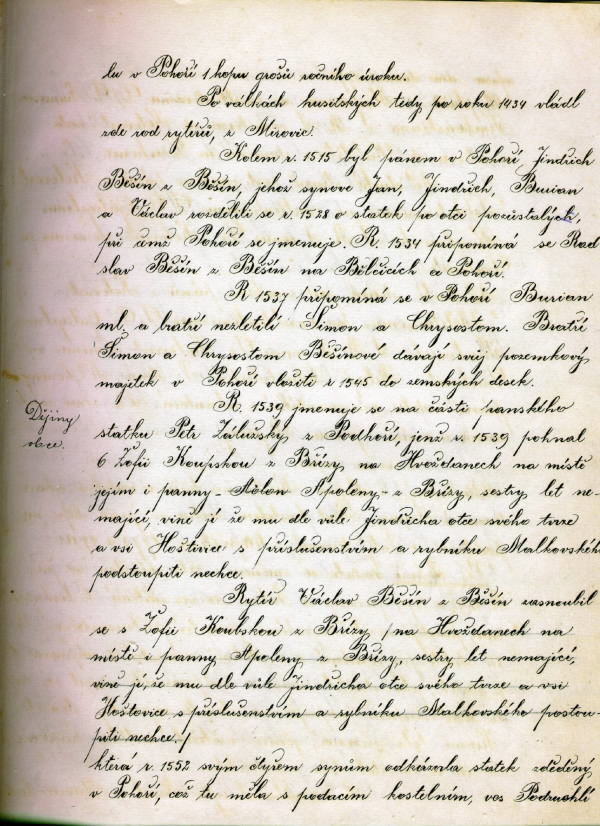 lu v Pohoří 1 kopu grošů ročního úroku.
Po válkách husitských tedy po roku 1434 vládl
zde rod rytířů, z Mirovic.
Kolem r. 1515 byl pánem v Pohoří, Jindřich
Běšín z Běšín, jehož synove Jan, Jindřich, Burian
a Václav rozdělili se r. 1528 o statek po otci pozůstalých,
při čemž Pohoří se jmenuje. R. 1534 připomíná se Rad
slav Běšín z Běšín na Bělčicích a Pohoří.
R 1537 připomíná se v Pohoří Burian
ml. a bratří nezletilí Šimon a Chrysostom. Bratří
Šimon a Chrysostom Běšínové dávají svůj pozemkový
majitek v Pohoří vložiti r 1545 do zemských desek.
R. 1539 jmenuje se na části panského
statku Petr Zálužský z Podhoří, jenž r. 1539 pohnal
6 Žofii Koupskou z Břízy na Hvoždanech na místě
jejím i panny Apoleny z Břízy, sestry let ne-
mající, vině jí že mu dle vůle Jindřicha otce svého tvrze
a vsi Hoštivice s příslušenstvím a rybníku Malkovského
podstoupiti nechce.
Rytíř Václav Běšín z Běšín zasnoubil
se s Žofií Koubskou z Břízy /na Hvoždanech na
místě i panny Apoleny z Břízy, sestry let nemající,
vině jí, že mu dle vůle Jindřicha otce svého tvrze a vsi
Hoštovice s příslušenstvím a rybníku Malkovského postou-
piti nechce./
která r 1552 svým čtyřem synům odkázala statek zděděný
v Pohoří, což tu měla s podacím kostelním, ves Podruhlí
Dějiny
obce.